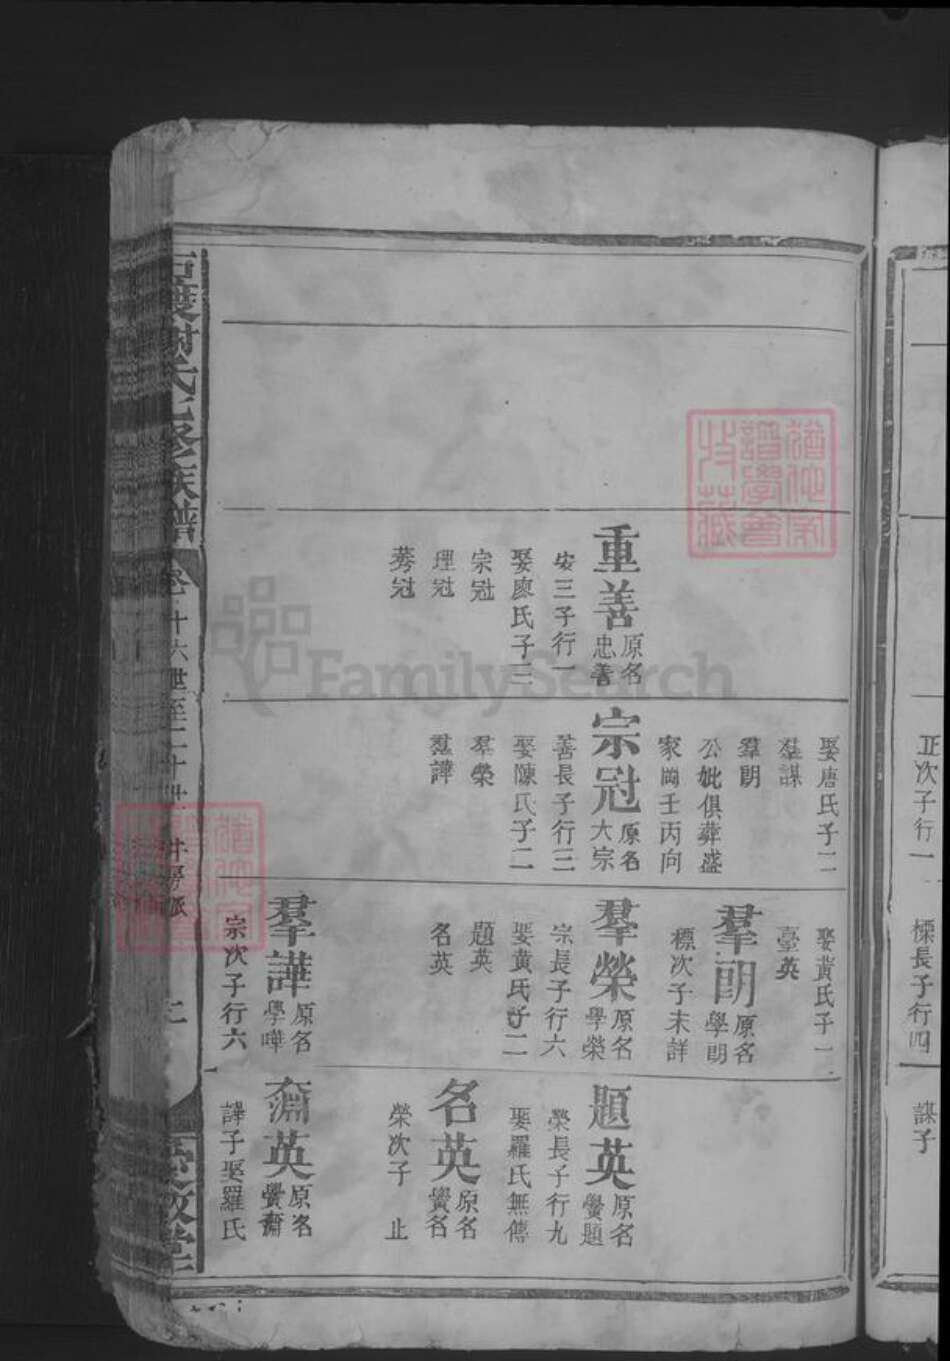 重善
原名
忠善
安三子行一
娶廖氏子三
宗冠
理冠
娶唐氏子二
羣謀
羣朗
公妣俱葬盛
家岡壬丙向
宗冠
原名
大宗
善長子行三
娶陳氏子二
羣榮
羣譁
娶黃氏子一
臺英
羣朗
原名
學朗
標次子未詳
羣榮
原名
學榮
宗長子行六
娶黃氏子二
題英
名英
羣譁
原名
學嘩
宗次子行六
題英
原名
黌題
榮長子行九
娶羅氏無傳
名英
原名
黌名
榮次子 止
英
原名
譁子娶羅氏
謝氏七修族譜
十六世至二十世
敘堂
正次子行一
長子行四
謀子
FamilySearch